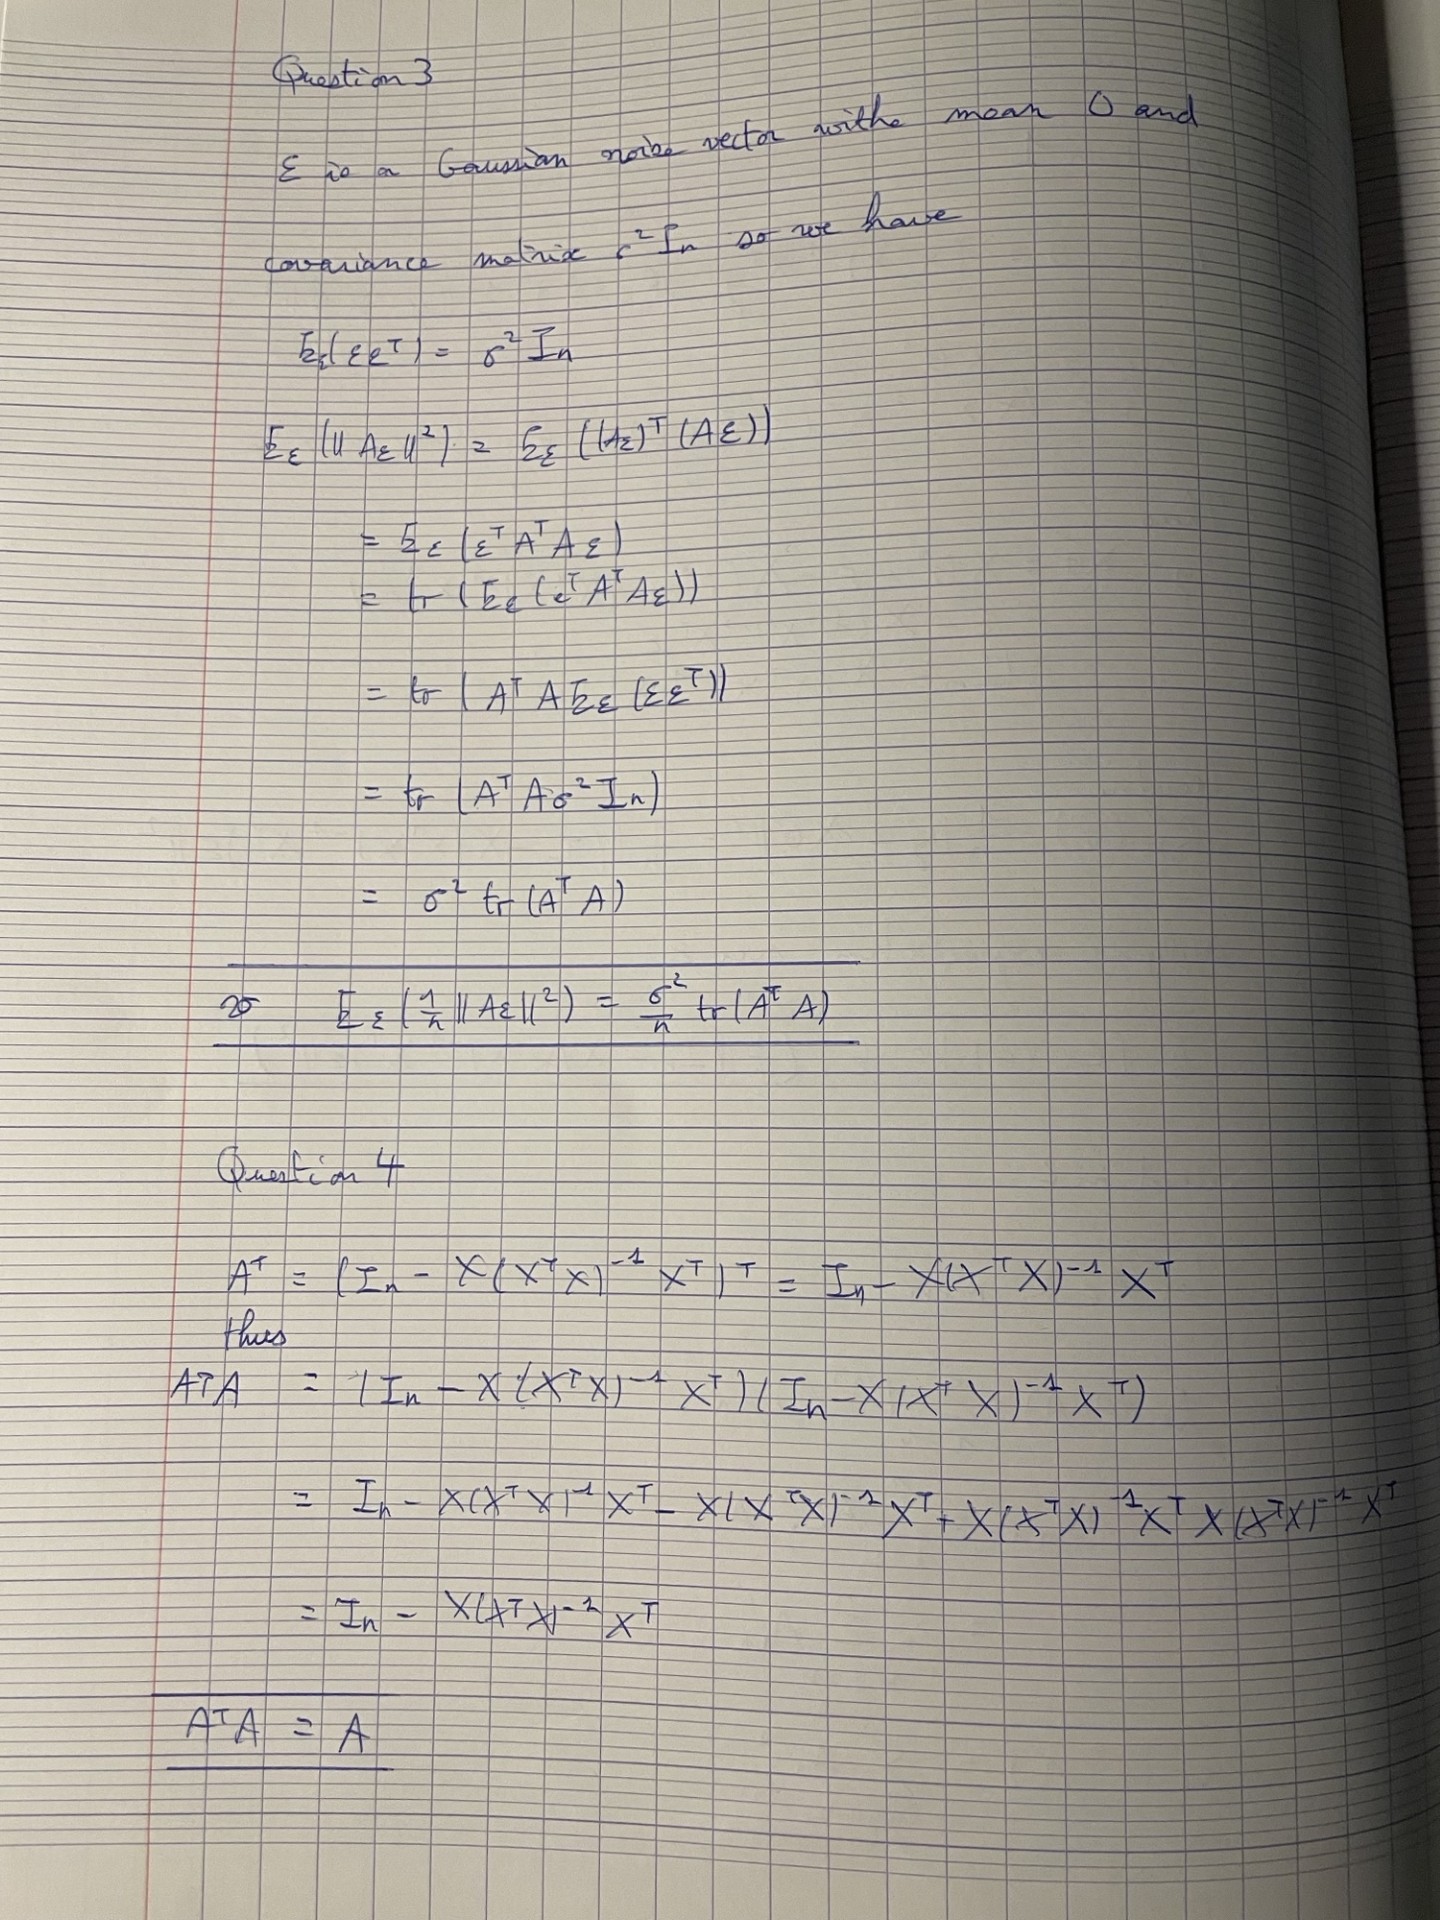 Question 3
ε is a Gaussian noise vector withe mean 0 and
covariance matrix σ² Iₙ so we have
E_ε(εεᵀ) = σ² Iₙ
E_ε(||Aε||²) = E_ε((Aε)ᵀ(Aε))
= E_ε(εᵀAᵀAε)
= tr(E_ε(εᵀAᵀAε))
= tr(AᵀA E_ε(εεᵀ))
= tr(AᵀAσ²Iₙ)
= σ² tr(AᵀA)
so E_ε(1/n ||Aε||²) = σ²/n tr(AᵀA)
Question 4
Aᵀ = (Iₙ - X(XᵀX)⁻¹Xᵀ)ᵀ = Iₙ - X(XᵀX)⁻¹Xᵀ
thus
AᵀA = (Iₙ - X(XᵀX)⁻¹Xᵀ)(Iₙ - X(XᵀX)⁻¹Xᵀ)
= Iₙ - X(XᵀX)⁻¹Xᵀ - X(XᵀX)⁻¹Xᵀ + X(XᵀX)⁻¹XᵀX(XᵀX)⁻¹Xᵀ
= Iₙ - X(XᵀX)⁻¹Xᵀ
AᵀA = A